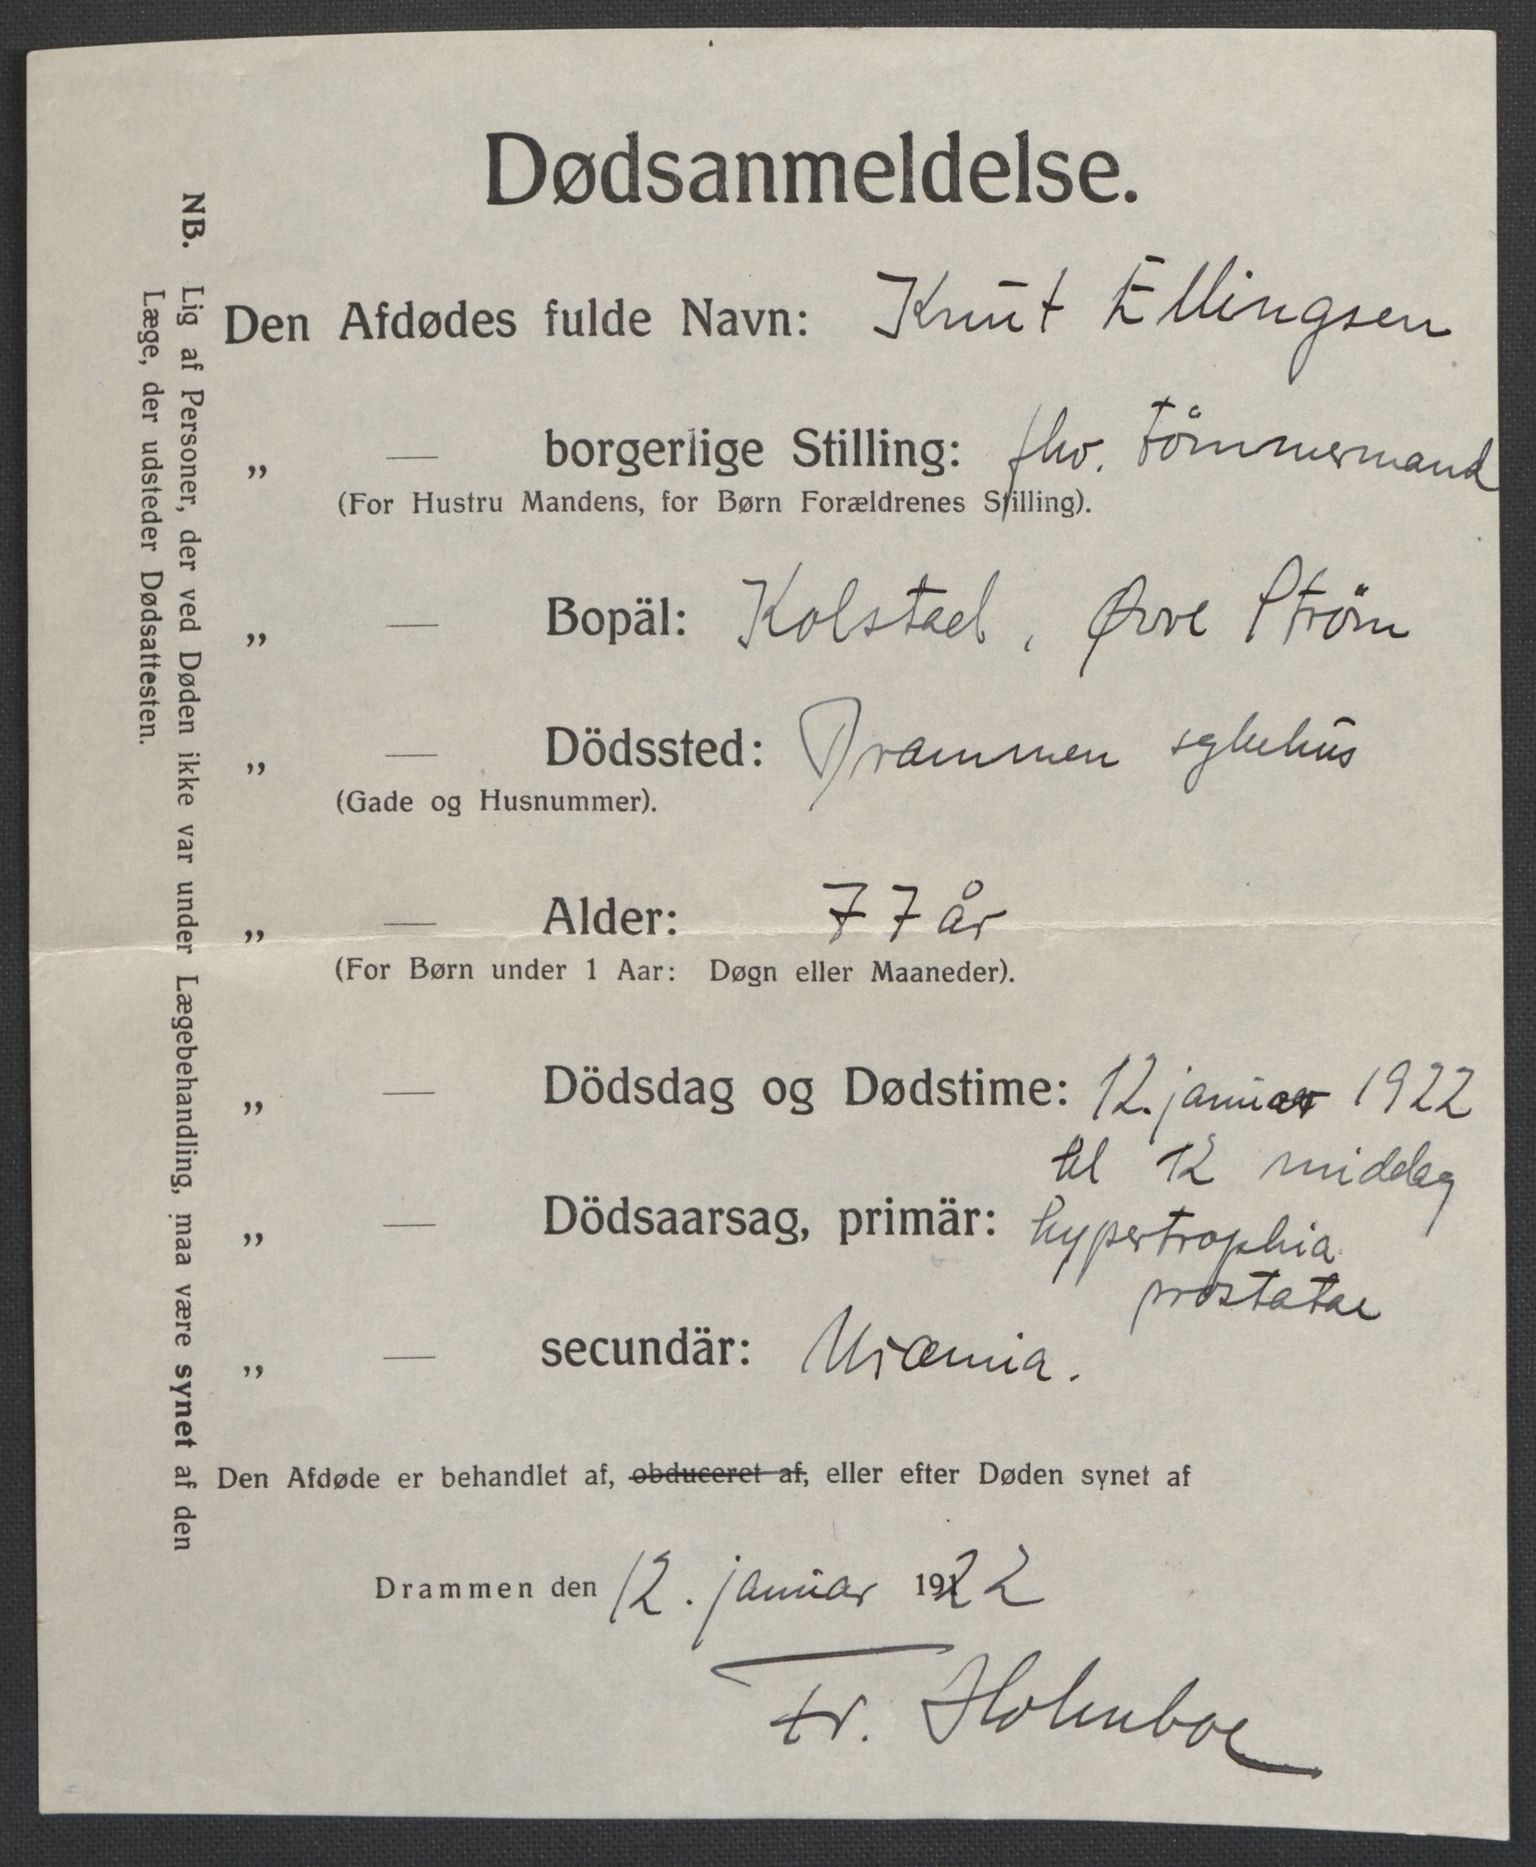 Dødsanmeldelse.
Den Afdødes fulde Navn: Knut Ellingsen
„ — borgerlige Stilling: fhv. tömmermand
(For Hustru Mandens, for Børn Forældrenes Stilling).
„ — Bopäl: Kolstad, Øvre Ström
„ — Dödssted: Drammen sykehus
(Gade og Husnummer).
„ — Alder: 77 år
(For Børn under 1 Aar: Døgn eller Maaneder).
„ — Dödsdag og Dødstime: 12. januar 1922
kl 12 middag
„ — Dödsaarsag, primär: hypertrophia
prostatae
„ — secundär: Uræmia.
Den Afdøde er behandlet af, obduceret af, eller efter Døden synet af
Drammen den 12. januar 1922
Fr. Holmboe
NB. Lig af Personer, der ved Døden ikke var under Lægebehandling, maa være synet af den
Læge, der udsteder Dødsattesten.